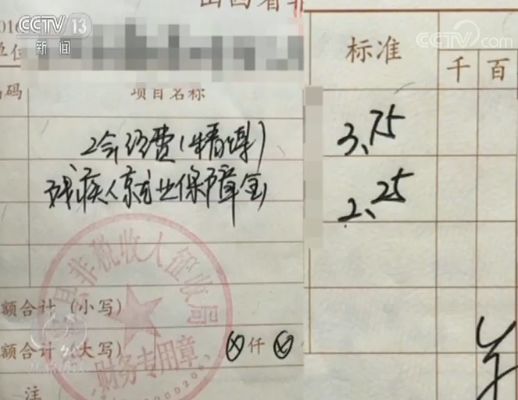 CCTV 13
新闻
CCTV
山西省非
码 项目名称 标准 千 百
工会经费(精煤) 3.75
残疾人就业保障金 2.25
县非税收入征收局
财务专用章
额合计(小写)
额合计(大写) ⊗仟⊗
注